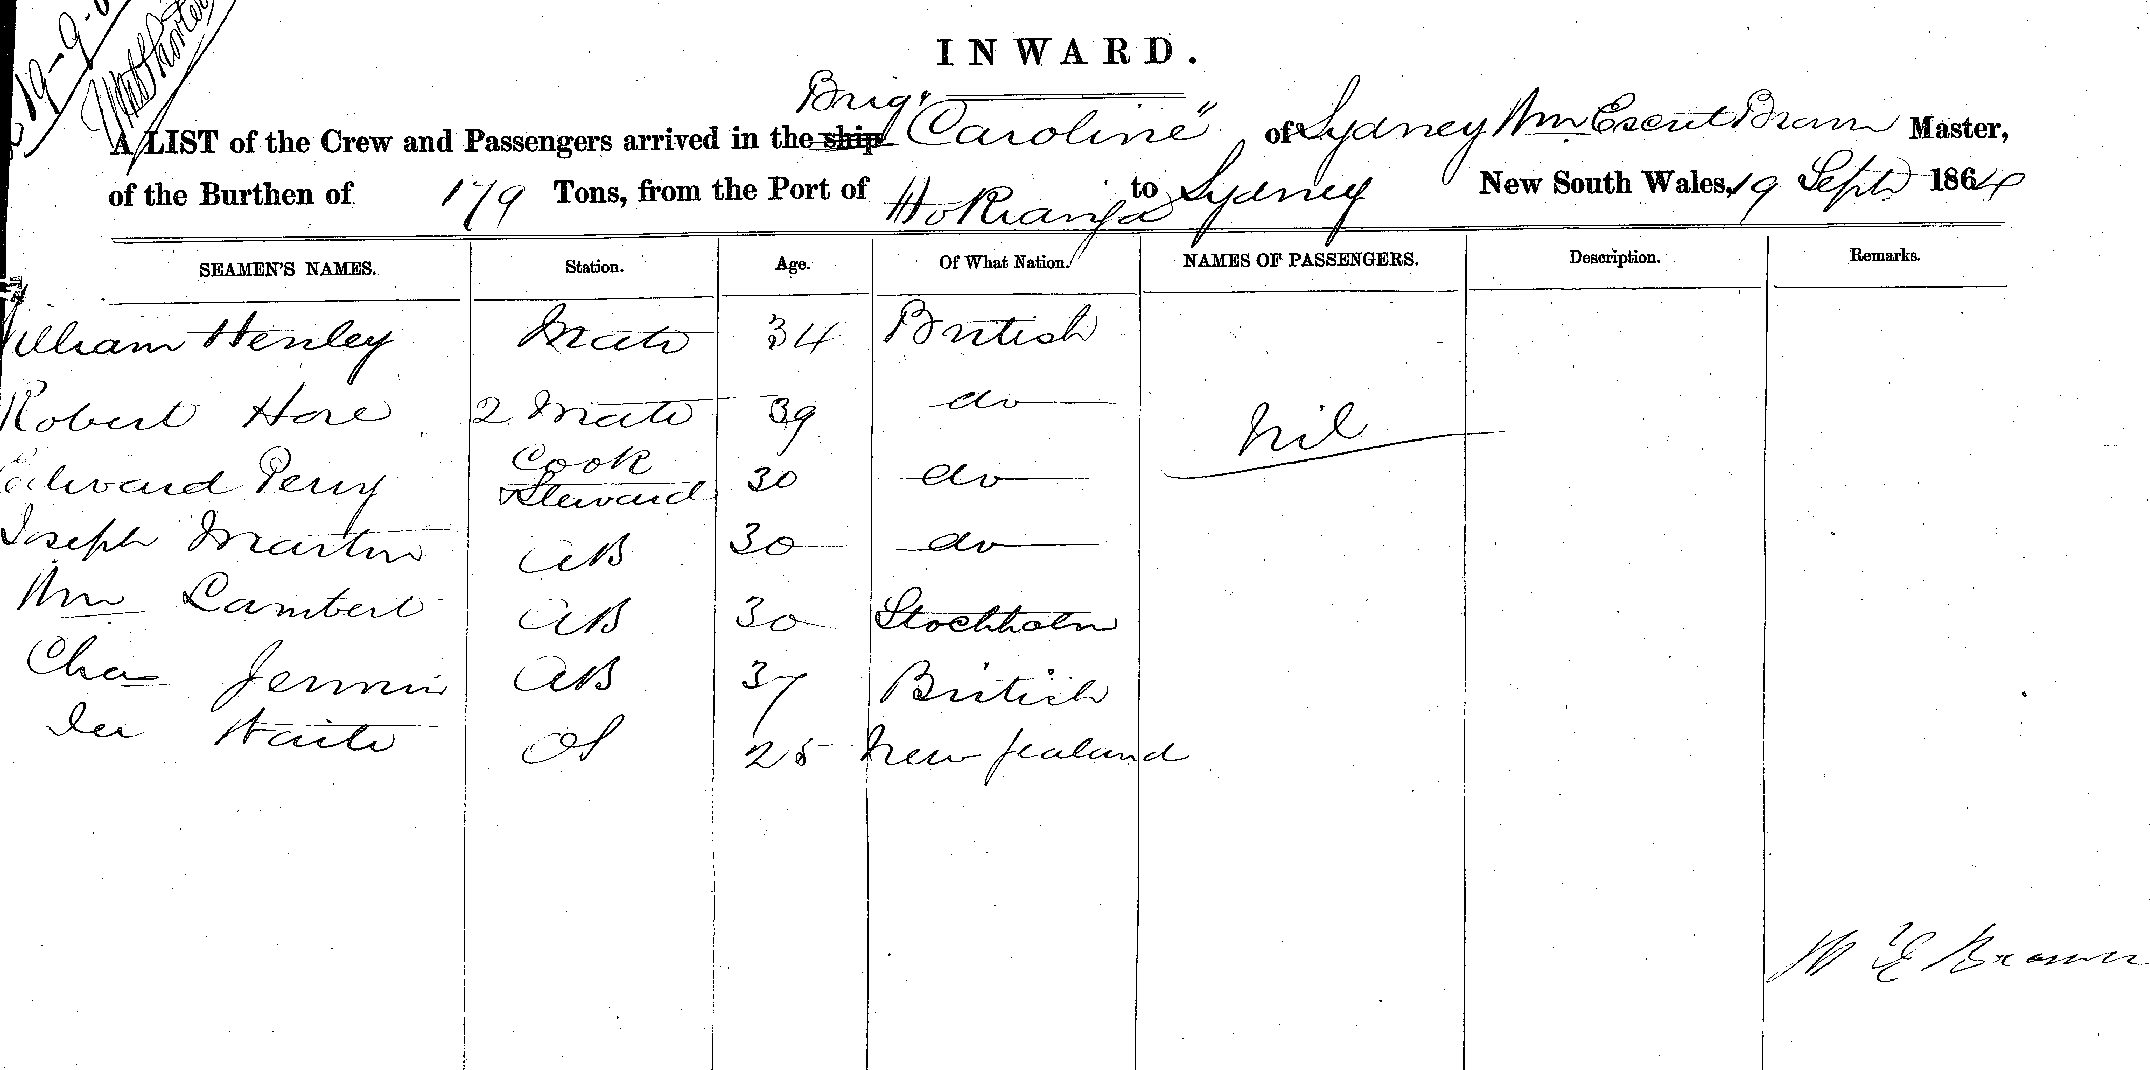 19-9-
INWARD.
Brig
A LIST of the Crew and Passengers arrived in the ship "Caroline" of Sydney Wm Escut Brown Master,
of the Burthen of 179 Tons, from the Port of Hokianga to Sydney New South Wales, 19 Sept 1864
SEAMEN'S NAMES. Station. Age. Of What Nation. NAMES OF PASSENGERS. Description. Remarks.
William Henley Mate 34 British
Robert Hore 2 Mate 39 do Nil
Edward Perry Cook Steward 30 do
Joseph Martin AB 30 do
Wm Lambert AB 30 Stockholm
Chas Jermin AB 37 British
Waite OS 25 New Zealand
W E Brown